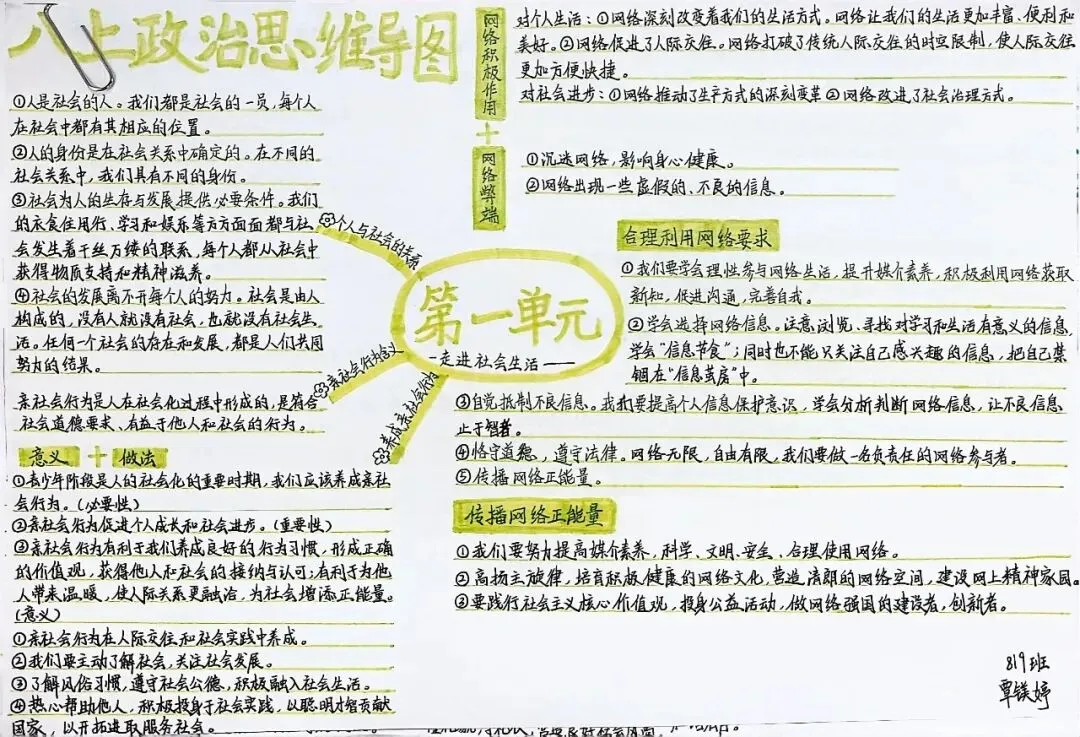 八上政治思维导图
①人是社会的人。我们都是社会的一员,每个人
在社会中都有其相应的位置。
②人的身份是在社会关系中确定的。在不同的
社会关系中,我们具有不同的身份。
③社会为人的生存与发展提供必要条件。我们
的衣食住用行、学习和娱乐等方方面面都与社
会发生着千丝万缕的联系,每个人都从社会中
获得物质支持和精神滋养。
④社会的发展离不开每个人的努力。社会是由人
构成的,没有人就没有社会,也就没有社会生
活。任何一个社会的存在和发展,都是人们共同
努力的结果。
亲社会行为是人在社会化过程中形成的,是符合
社会道德要求、有益于他人和社会的行为。
意义 + 做法
①青少年阶段是人的社会化的重要时期,我们应该养成亲社
会行为。(必要性)
②亲社会行为促进个人成长和社会进步。(重要性)
③亲社会行为有利于我们养成良好的行为习惯,形成正确
的价值观,获得他人和社会的接纳与认可;有利于为他
人带来温暖,使人际关系更融洽,为社会增添正能量。
(意义)
①亲社会行为在人际交往和社会实践中养成。
②我们要主动了解社会,关注社会发展。
③了解风俗习惯,遵守社会公德,积极融入社会生活。
④热心帮助他人,积极投身于社会实践,以聪明才智贡献
国家,以开拓进取服务社会。
个人与社会的关系
亲社会行为含义
养成亲社会行为
第一单元
-走进社会生活——
网络积极作用
+
网络弊端
对个人生活:①网络深刻改变着我们的生活方式。网络让我们的生活更加丰富、便利和
美好。②网络促进了人际交往。网络打破了传统人际交往的时空限制,使人际交往
更加方便快捷。
对社会进步:①网络推动了生产方式的深刻变革②网络改进了社会治理方式。
①沉迷网络,影响身心健康。
②网络出现一些虚假的、不良的信息。
合理利用网络要求
①我们要学会理性参与网络生活,提升媒介素养,积极利用网络获取
新知,促进沟通,完善自我。
②学会选择网络信息。注意浏览、寻找对学习和生活有意义的信息,
学会“信息节食”;同时也不能只关注自己感兴趣的信息,把自己禁
锢在“信息茧房”中。
③自觉抵制不良信息。我们要提高个人信息保护意识,学会分析判断网络信息,让不良信息
止于智者。
④恪守道德,遵守法律。网络无限,自由有限,我们要做一名负责任的网络参与者。
⑤传播网络正能量。
传播网络正能量
①我们要努力提高媒介素养,科学、文明、安全、合理使用网络。
②高扬主旋律,培育积极健康的网络文化,营造清朗的网络空间,建设网上精神家园。
③要践行社会主义核心价值观,投身公益活动,做网络强国的建设者,创新者。
819班
覃镁婷